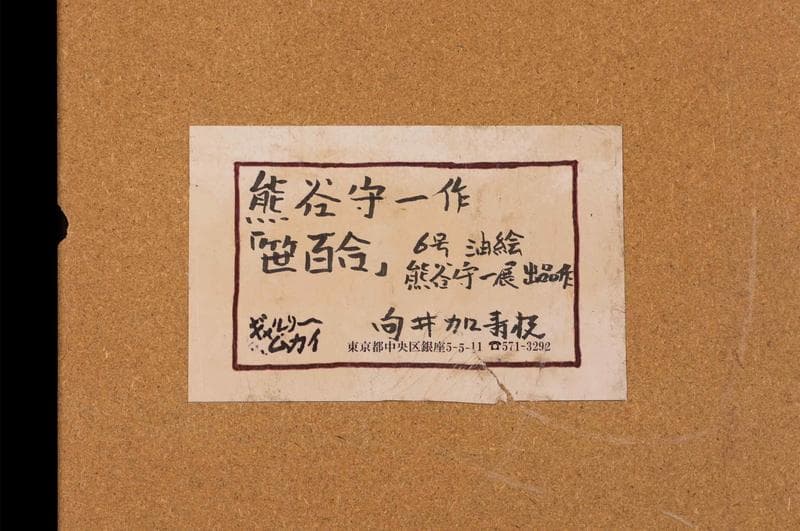 熊谷守一作
「笹百合」 6号 油絵
熊谷守一展 出品作
ギャルリー
ムカイ
向井加寿枝
東京都中央区銀座5-5-11 ☎571-3292